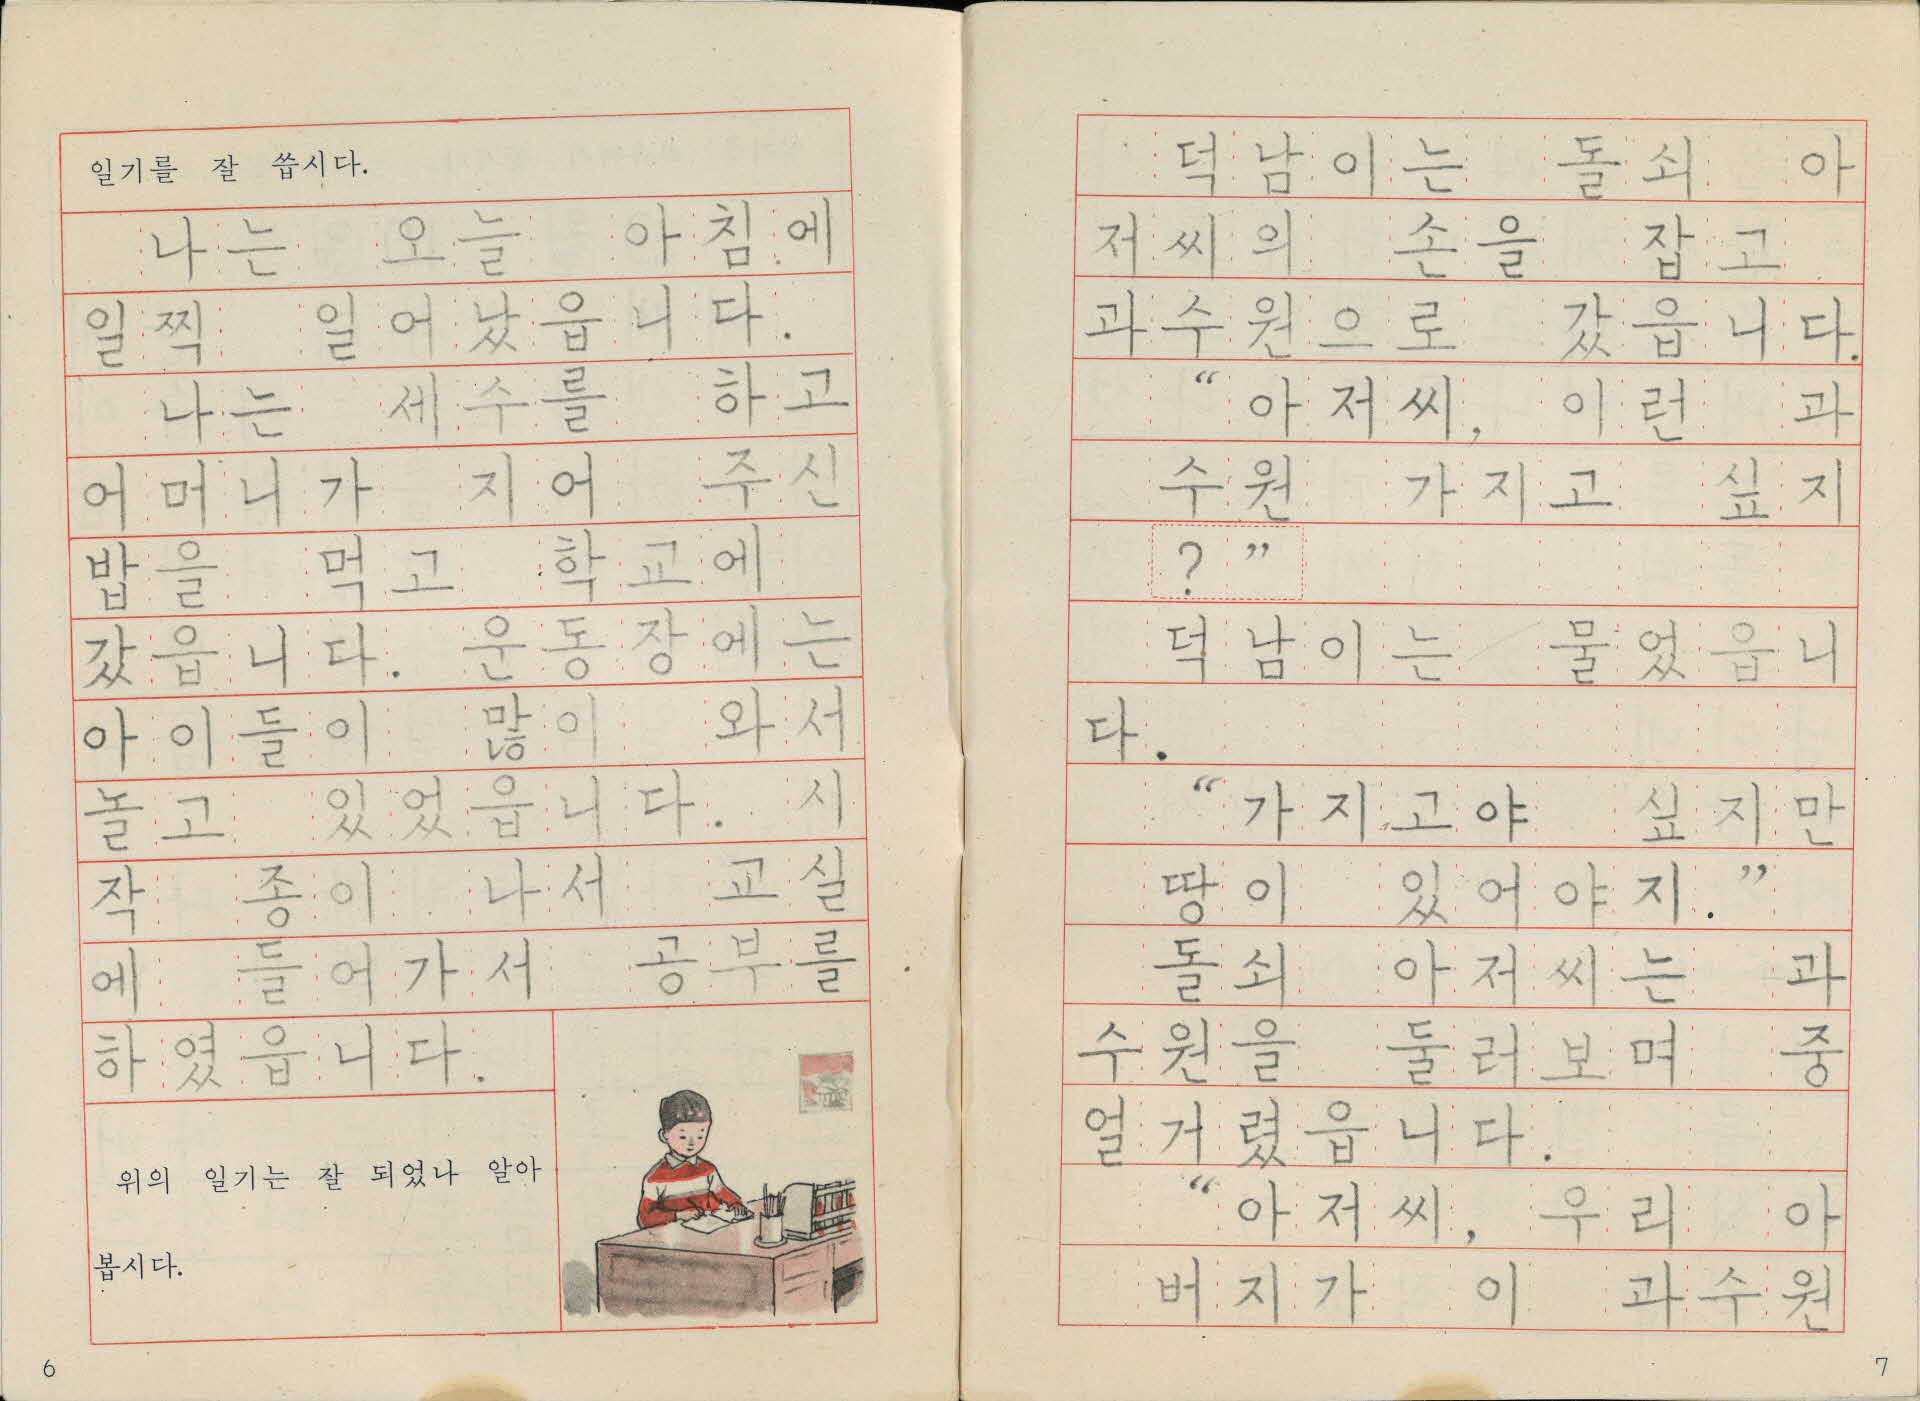 일기를 잘 씁시다.
나는 오늘 아침에
일찍 일어났읍니다.
나는 세수를 하고
어머니가 지어 주신
밥을 먹고 학교에
갔읍니다. 운동장에는
아이들이 많이 와서
놀고 있었읍니다. 시
작 종이 나서 교실
에 들어가서 공부를
하였읍니다.
위의 일기는 잘 되었나 알아
봅시다.
6
덕남이는 돌쇠 아
저씨의 손을 잡고
과수원으로 갔읍니다.
“아저씨, 이런 과
수원 가지고 싶지
?”
덕남이는 물었읍니
다.
“가지고야 싶지만
땅이 있어야지.”
돌쇠 아저씨는 과
수원을 둘러보며 중
얼거렸읍니다.
“아저씨, 우리 아
버지가 이 과수원
7